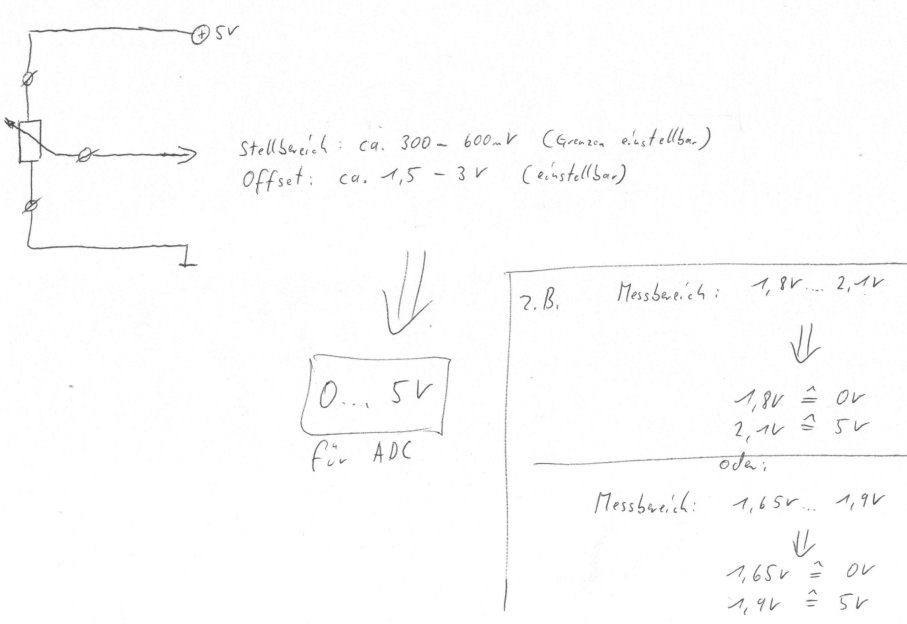 + 5V
Stellbereich: ca. 300 - 600mV (Grenzen einstellbar)
Offset: ca. 1,5 - 3V (einstellbar)
0... 5V
für ADC
z.B. Messbereich: 1,8V... 2,1V
1,8V ≙ 0V
2,1V ≙ 5V
oder:
Messbereich: 1,65V... 1,9V
1,65V ≙ 0V
1,9V ≙ 5V